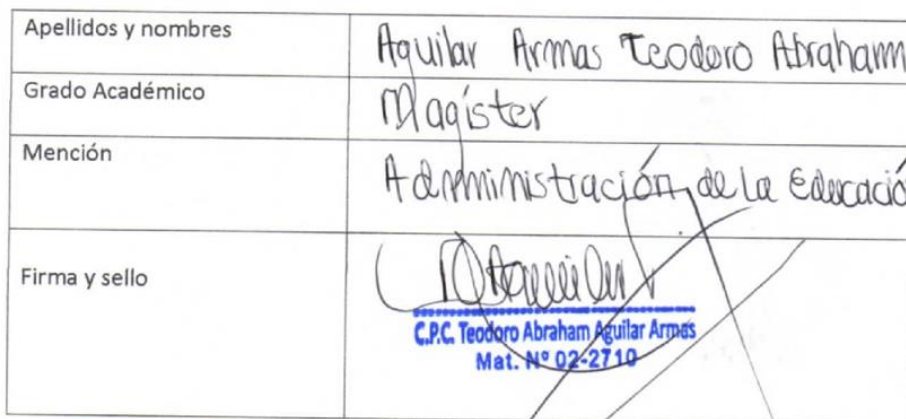 Apellidos y nombres
Aguilar Armas Teodoro Abraham
Grado Académico
Magíster
Mención
Administración de la Educació
Firma y sello
C.P.C. Teodoro Abraham Aguilar Armas
Mat. Nº 02-2710